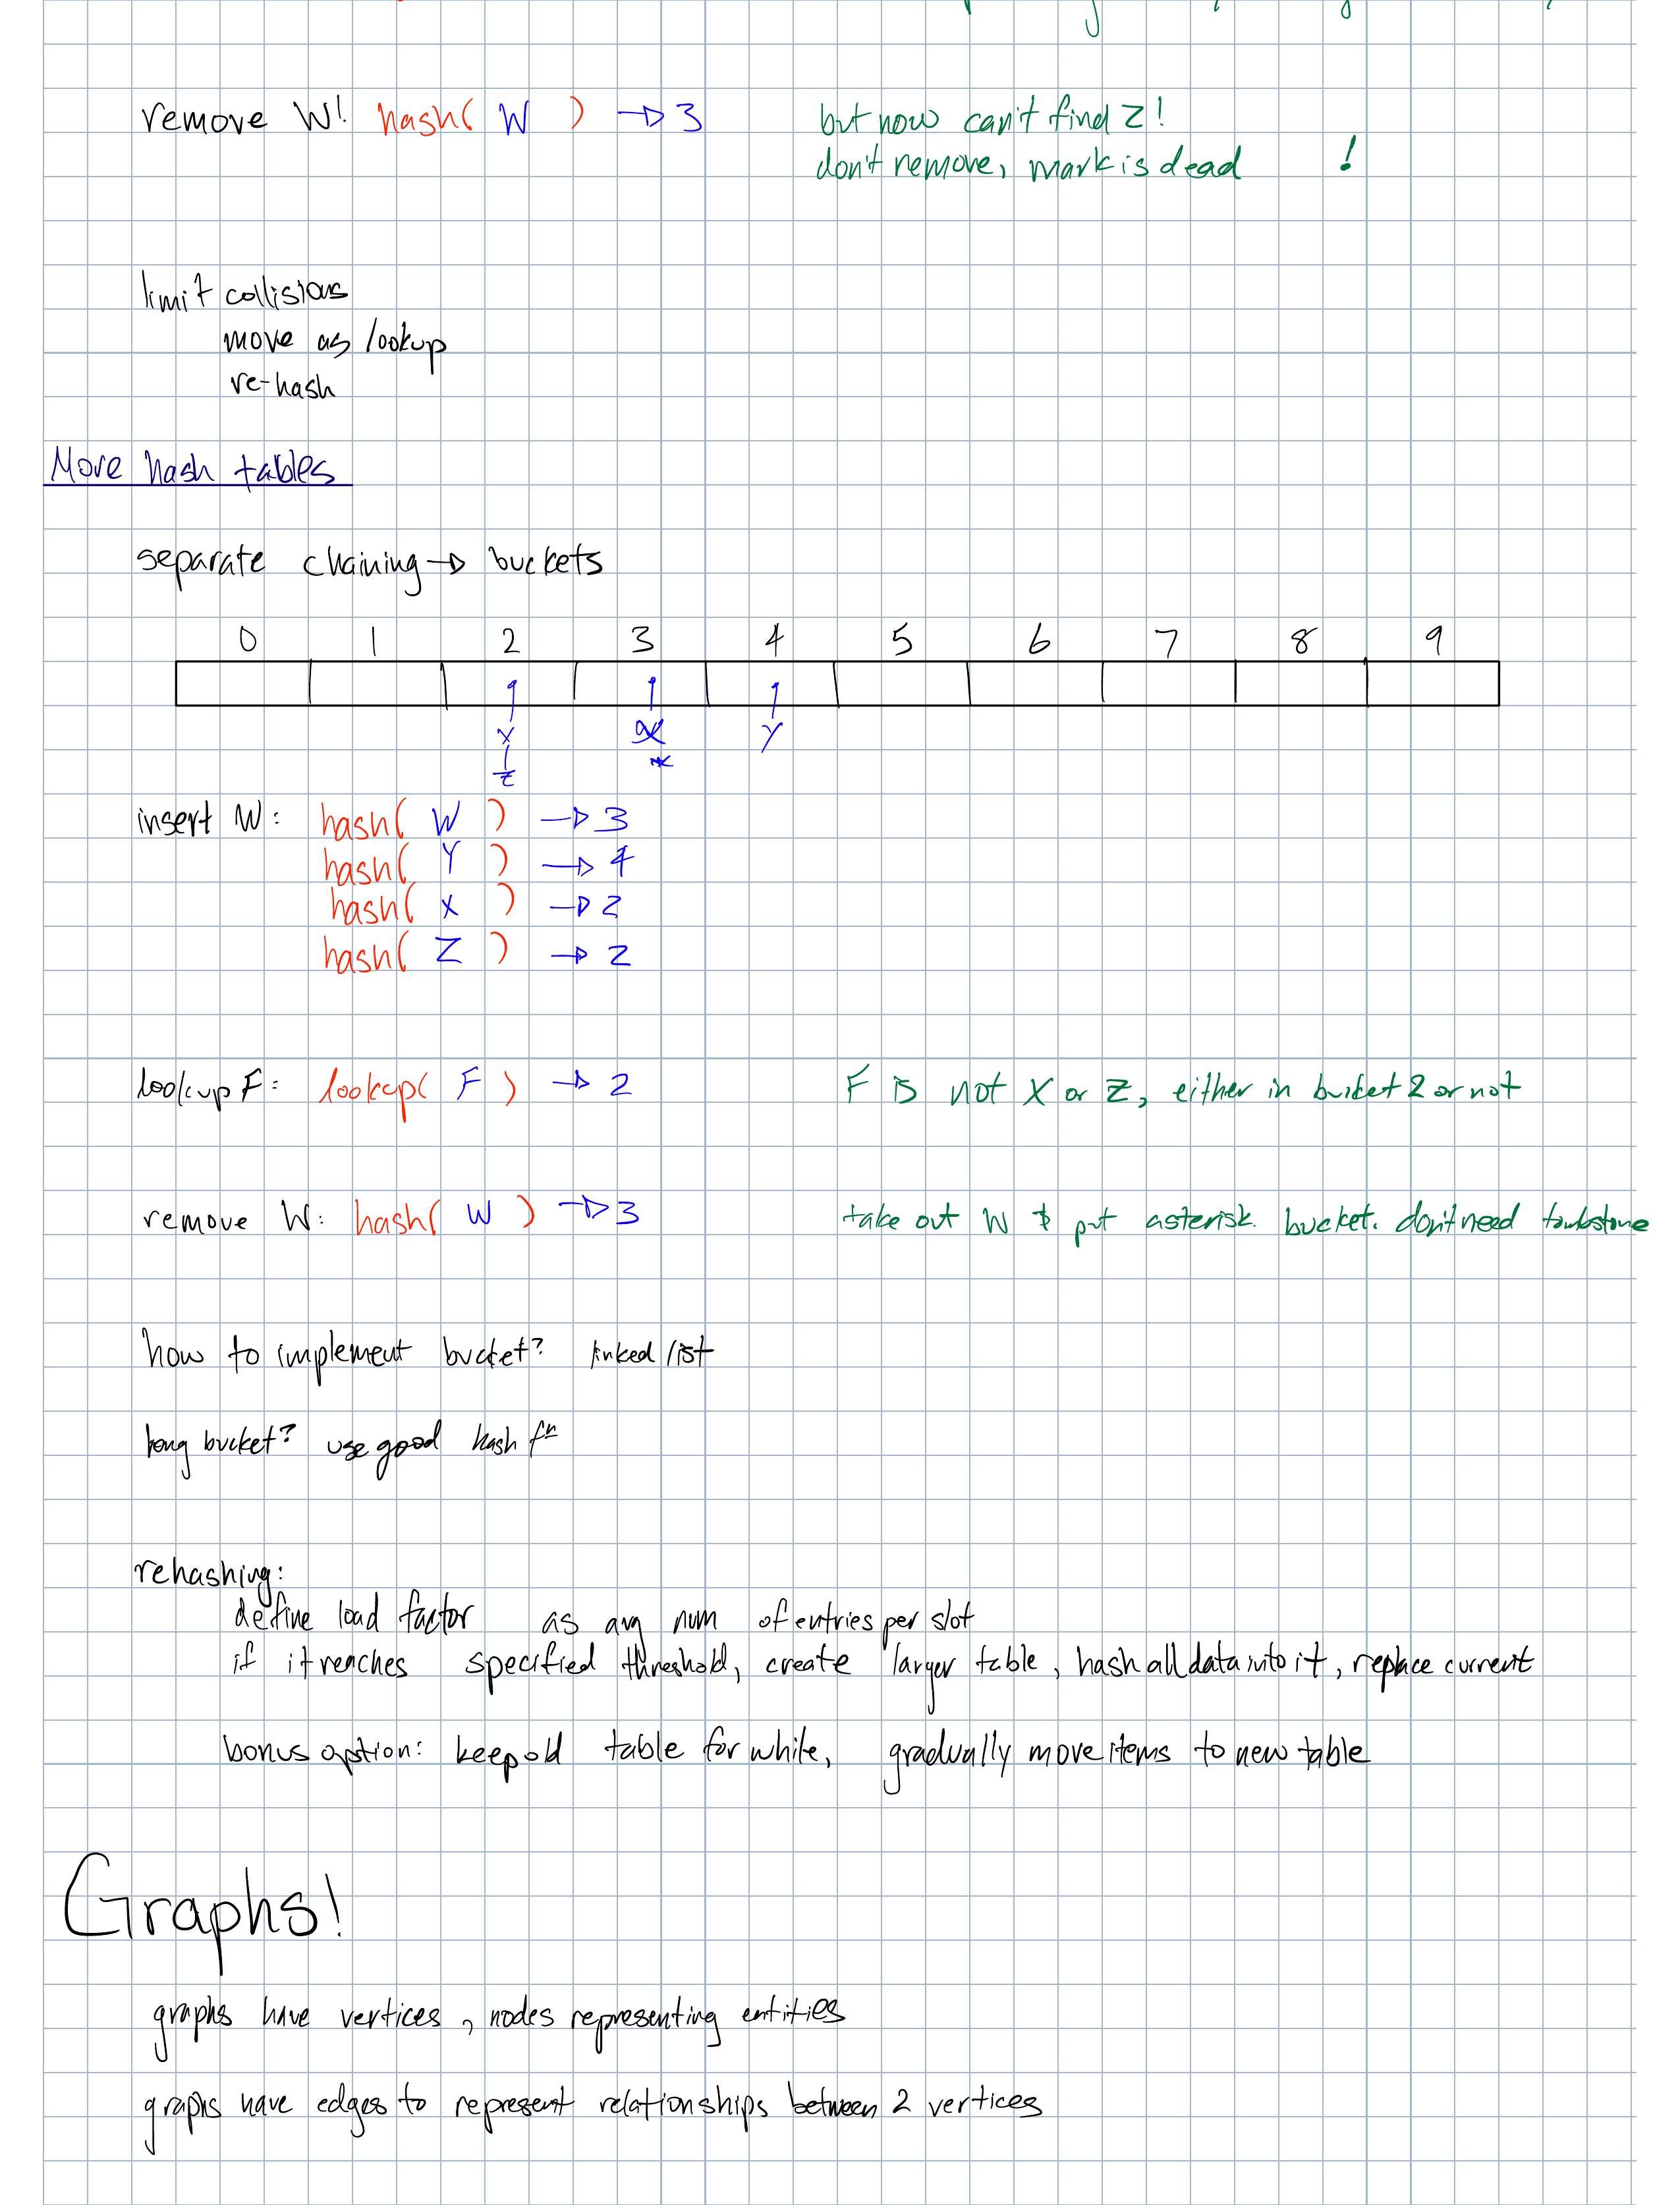 remove W! hash( W ) → 3 but now can't find Z!
don't remove, mark is dead !
limit collisions
move as lookup
re-hash
More hash tables
separate chaining → buckets
0 1 2 3 4 5 6 7 8 9
X Y
*
Z
insert W: hash( W ) → 3
hash( Y ) → 4
hash( X ) → 2
hash( Z ) → 2
lookup F: lookup( F ) → 2 F is not X or Z, either in bucket 2 or not
remove W: hash( W ) → 3 take out W & put asterisk. bucket. don't need tombstone
how to implement bucket? linked list
long bucket? use good hash fn
rehashing:
define load factor as avg num of entries per slot
if it reaches specified threshold, create larger table, hash all data into it, replace current
bonus option: keep old table for while, gradually move items to new table
Graphs!
graphs have vertices, nodes representing entities
graphs have edges to represent relationships between 2 vertices